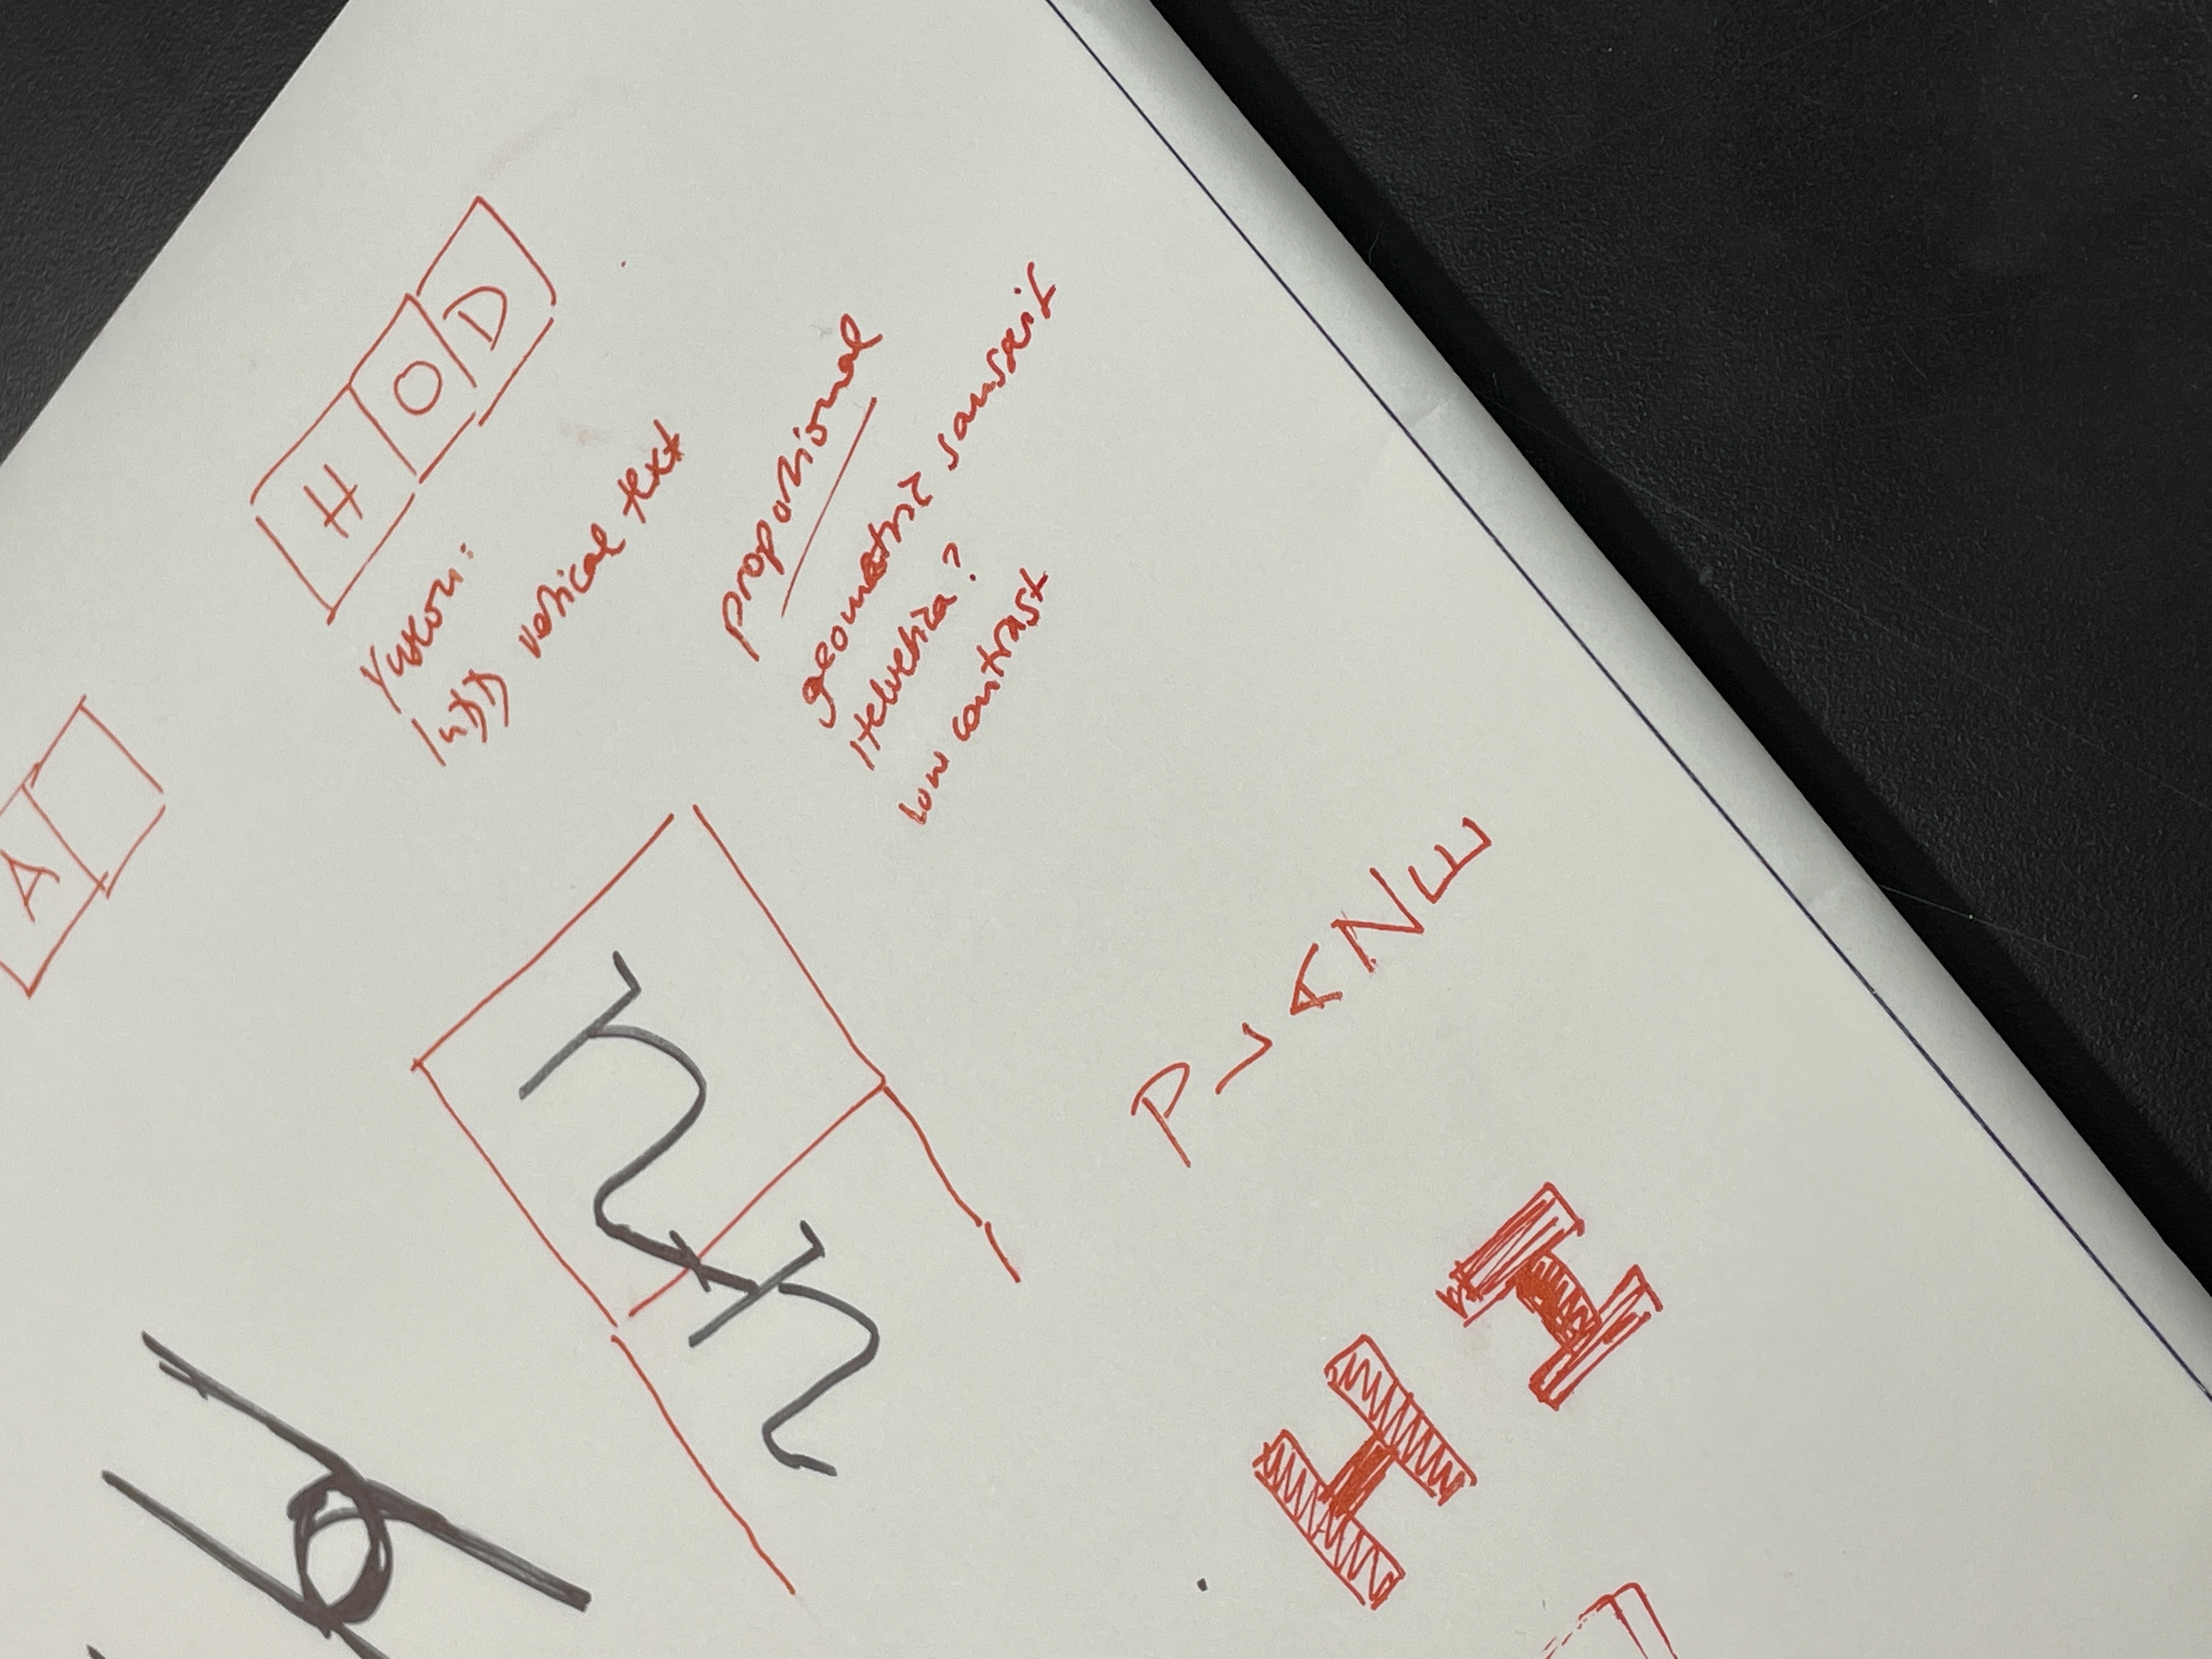 A
H O D
Yuxon:
vertical text
proportional
geometric sanserif
Helvetica?
low contrast
u u
PLANE
H
H